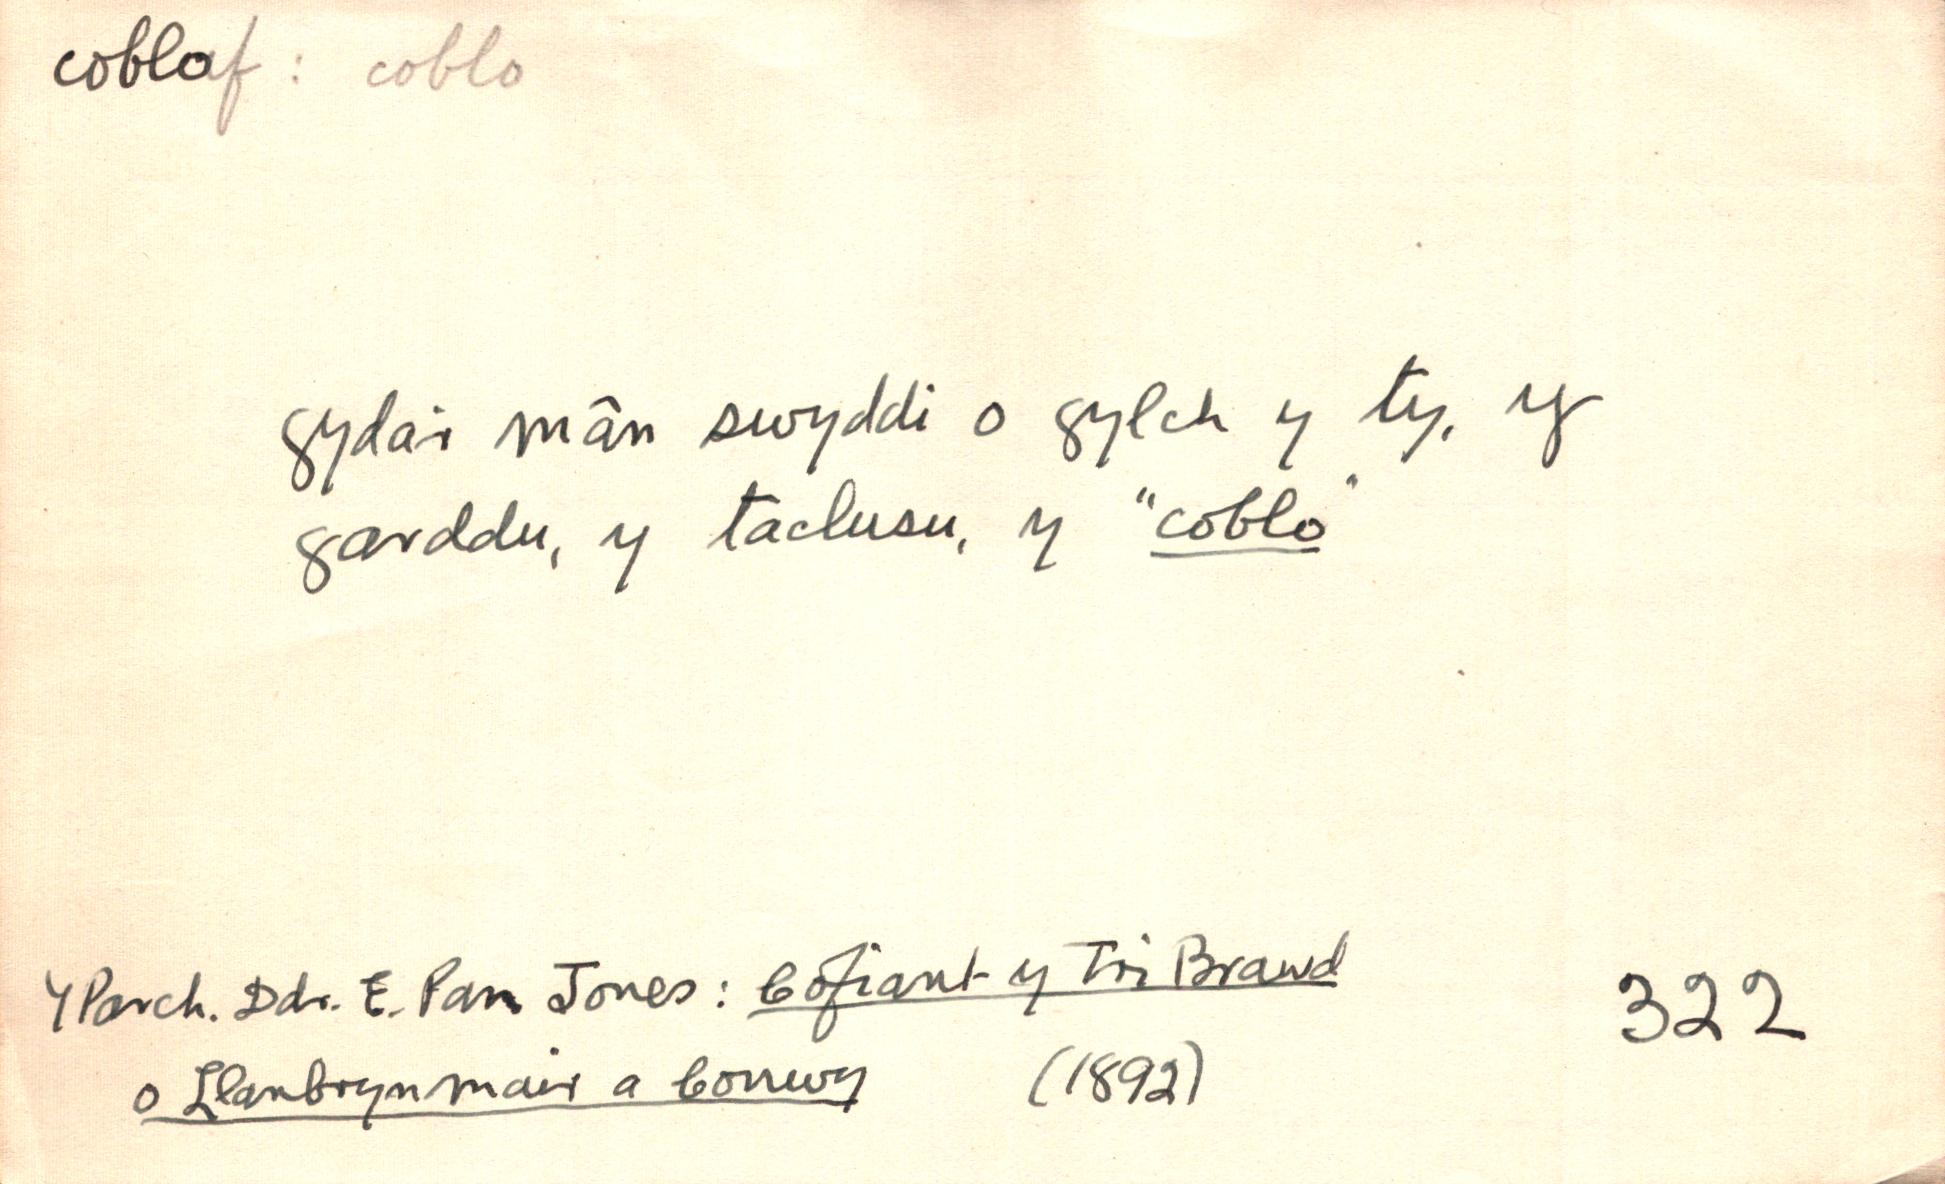 coblaf : coblo
gyda'r mân swyddi o gylch y ty, y
garddu, y taclusu, y "coblo"
Y Parch. Ddr. E. Pan Jones : Cofiant y Tri Brawd
o Llanbrynmair a Conwy (1892) 322